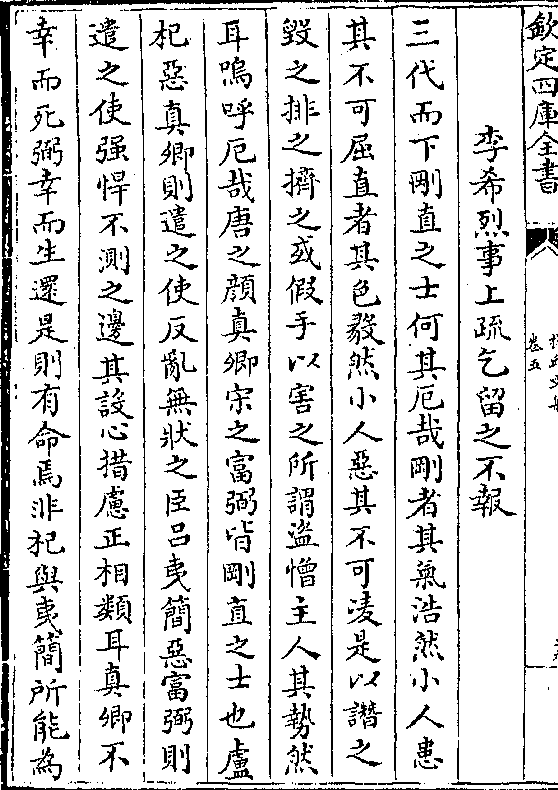 欽定四庫全書
卷五
李希烈事上疏乞留之不報
三代而下剛直之士何其厄哉剛者其氣浩然小人患
其不可屈直者其色毅然小人惡其不可凌是以譖之
毀之排之擠之或假手以害之所謂盗憎主人其勢然
耳嗚呼厄哉唐之顔真卿宋之富弼皆剛直之士也盧
杞惡真卿則遣之使反亂無狀之臣吕夷簡惡富弼則
遣之使强悍不測之邊其設心措慮正相類耳真卿不
幸而死弼幸而生還是則有命焉非杞與夷簡所能為